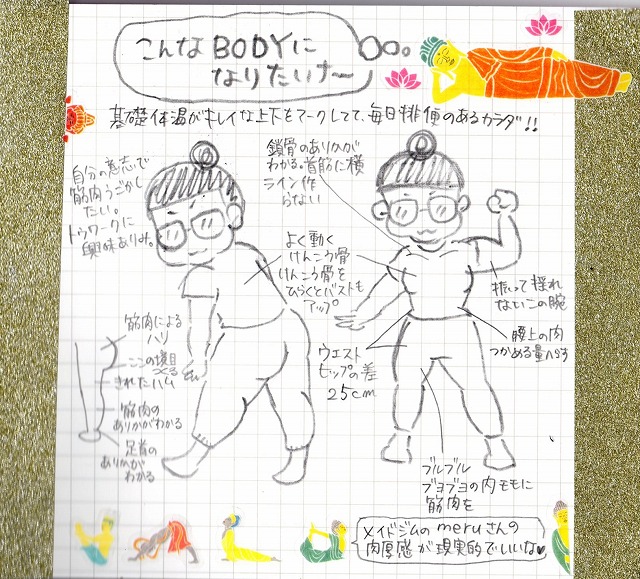 こんなBODYに
なりたいナ〜
基礎体温がキレイな上下をマークしてて、毎日排便のあるカラダ!!
自分の意志で
筋肉うごかし
たい。
トゥワークに
興味ありみ。
鎖骨のありかが
わかる。首筋に横
ライン作
らない
よく動く
けんこう骨
けんこう骨を
ひらくとバストも
アップ
振って揺れ
ない二の腕
腰上の肉
つかめる量へらす
ウエスト
ヒップの差
25cm
筋肉による
ハリ
ここの境目
つくる
されたハム
筋肉の
ありかがわかる
足首の
ありかが
わかる
ブルブル
ブヨブヨの内モモに
筋肉を
メイドジムのmeruさんの
肉厚感が現実的でいいな♥